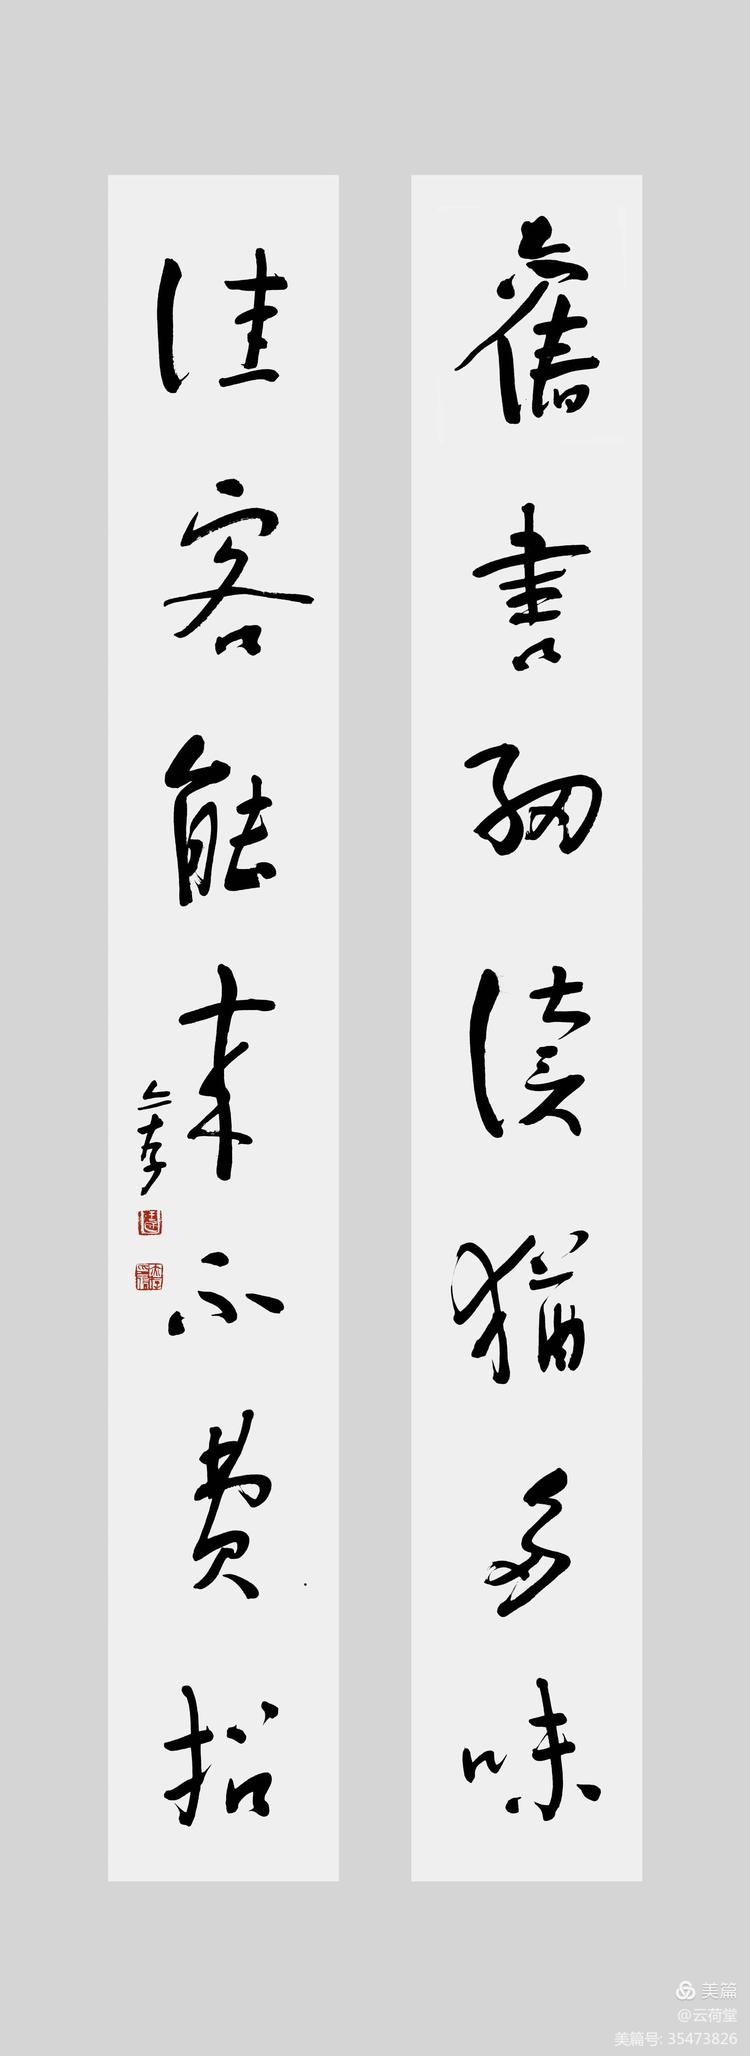 舊書細讀猶多味
佳客能來不費招
美篇
@云荷堂
美篇号: 35473826